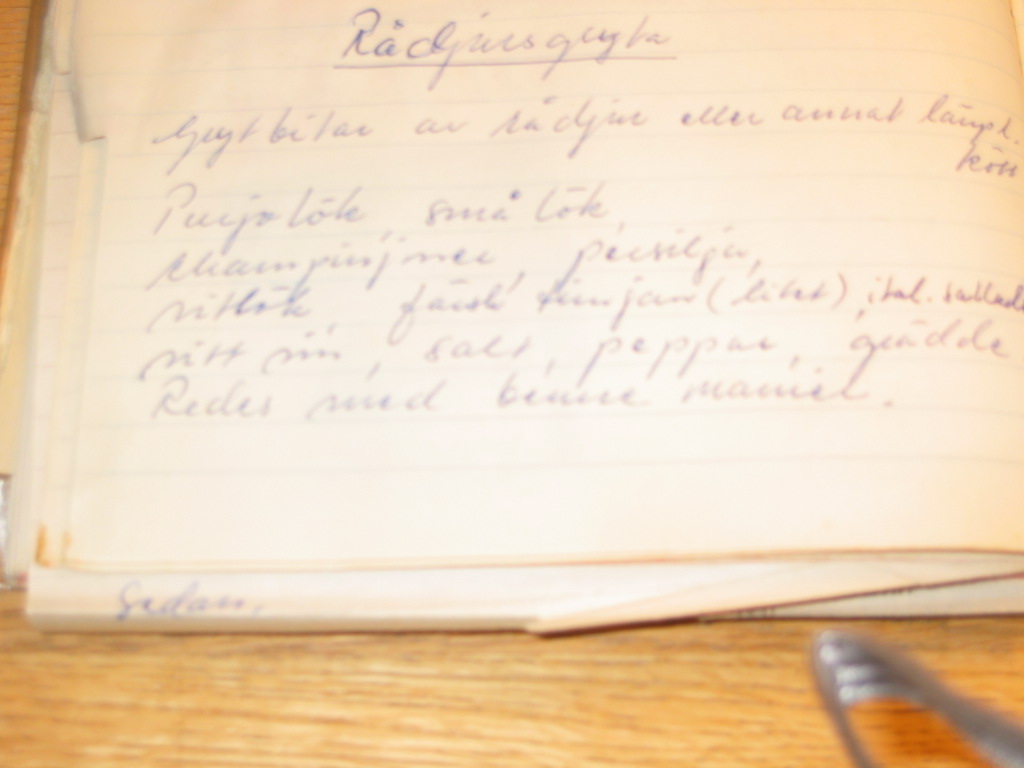 Rådjursgryta
Grytbitar av rådjur eller annat lämpl.
kött
Purjolök, små lök,
champinjoner, persilja,
vitlök, färsk timjan (litet), ital. sallads
vitt vin, salt, peppar, grädde
Redes med beurre manier.
Sedan.